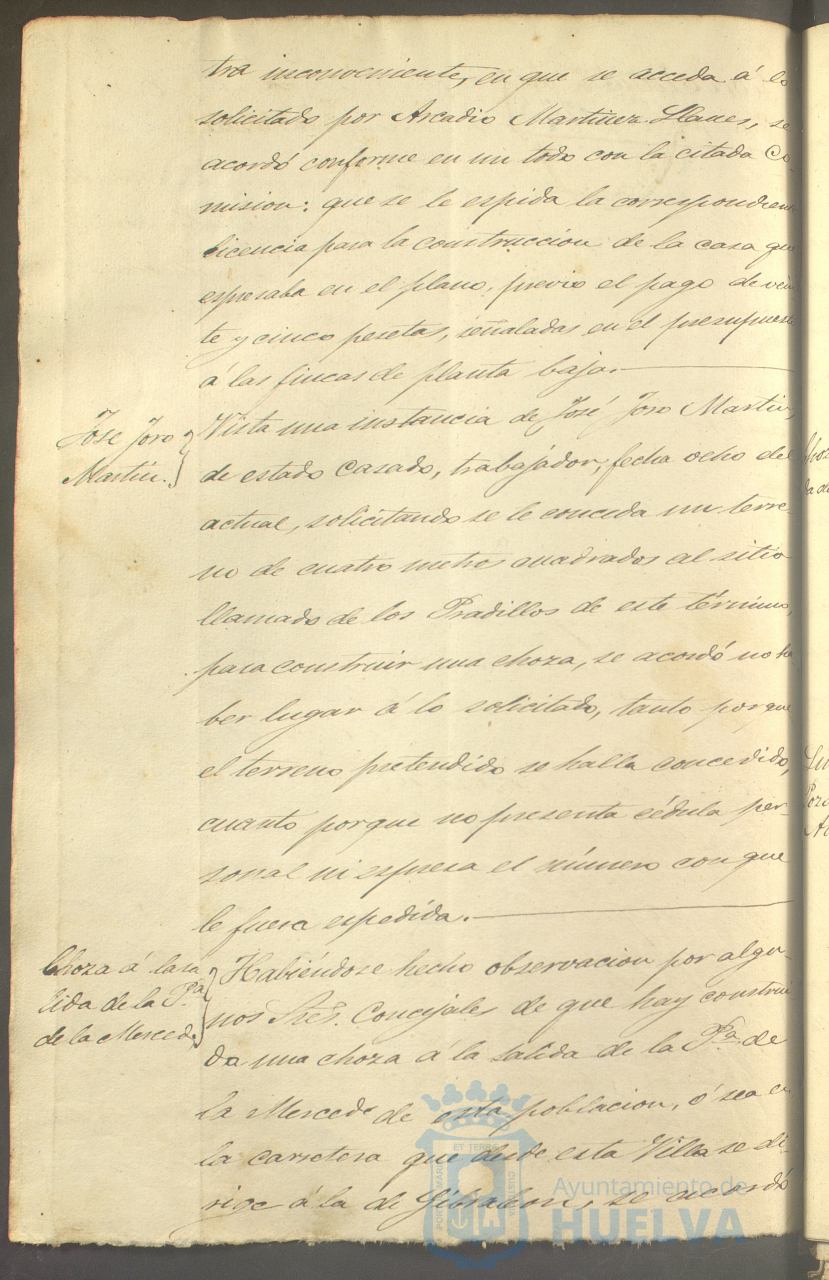 tra inconveniente, en que se acceda á lo
solicitado por Arcadio Martinez Llanes, se
acordó conforme en un todo con la citada Co-
mision: que se le espida la correspondiente
licencia para la construccion de la casa que
espresaba en el plano, previo el pago de vein
te y cinco pesetas, señaladas en el presupuesto
á las fincas de planta baja.
Jose Toro
Martin.
Vista una instancia de José Toro Martin,
de estado casado, trabajador, fecha ocho del
actual, solicitando se le conceda un terre-
no de cuatro metros cuadrados al sitio
llamado de los Pradillos de este término,
para construir una choza, se acordó no ha
ber lugar á lo solicitado, tanto porque
el terreno pretendido se halla concedido,
cuanto porque no presenta cédula per-
sonal ni espresa el número con que
le fuera espedida.
Choza á la sa
lida de la Pª
de la Merced.
Habiéndose hecho observacion por algu-
nos Sres. Concejales de que hay construi
da una choza á la salida de la Pª de
la Merced de esta poblacion, ó sea en
la carretera que desde esta Villa se di-
rige á la de Gibraleon, se acordó
Ayuntamiento de
HUELVA